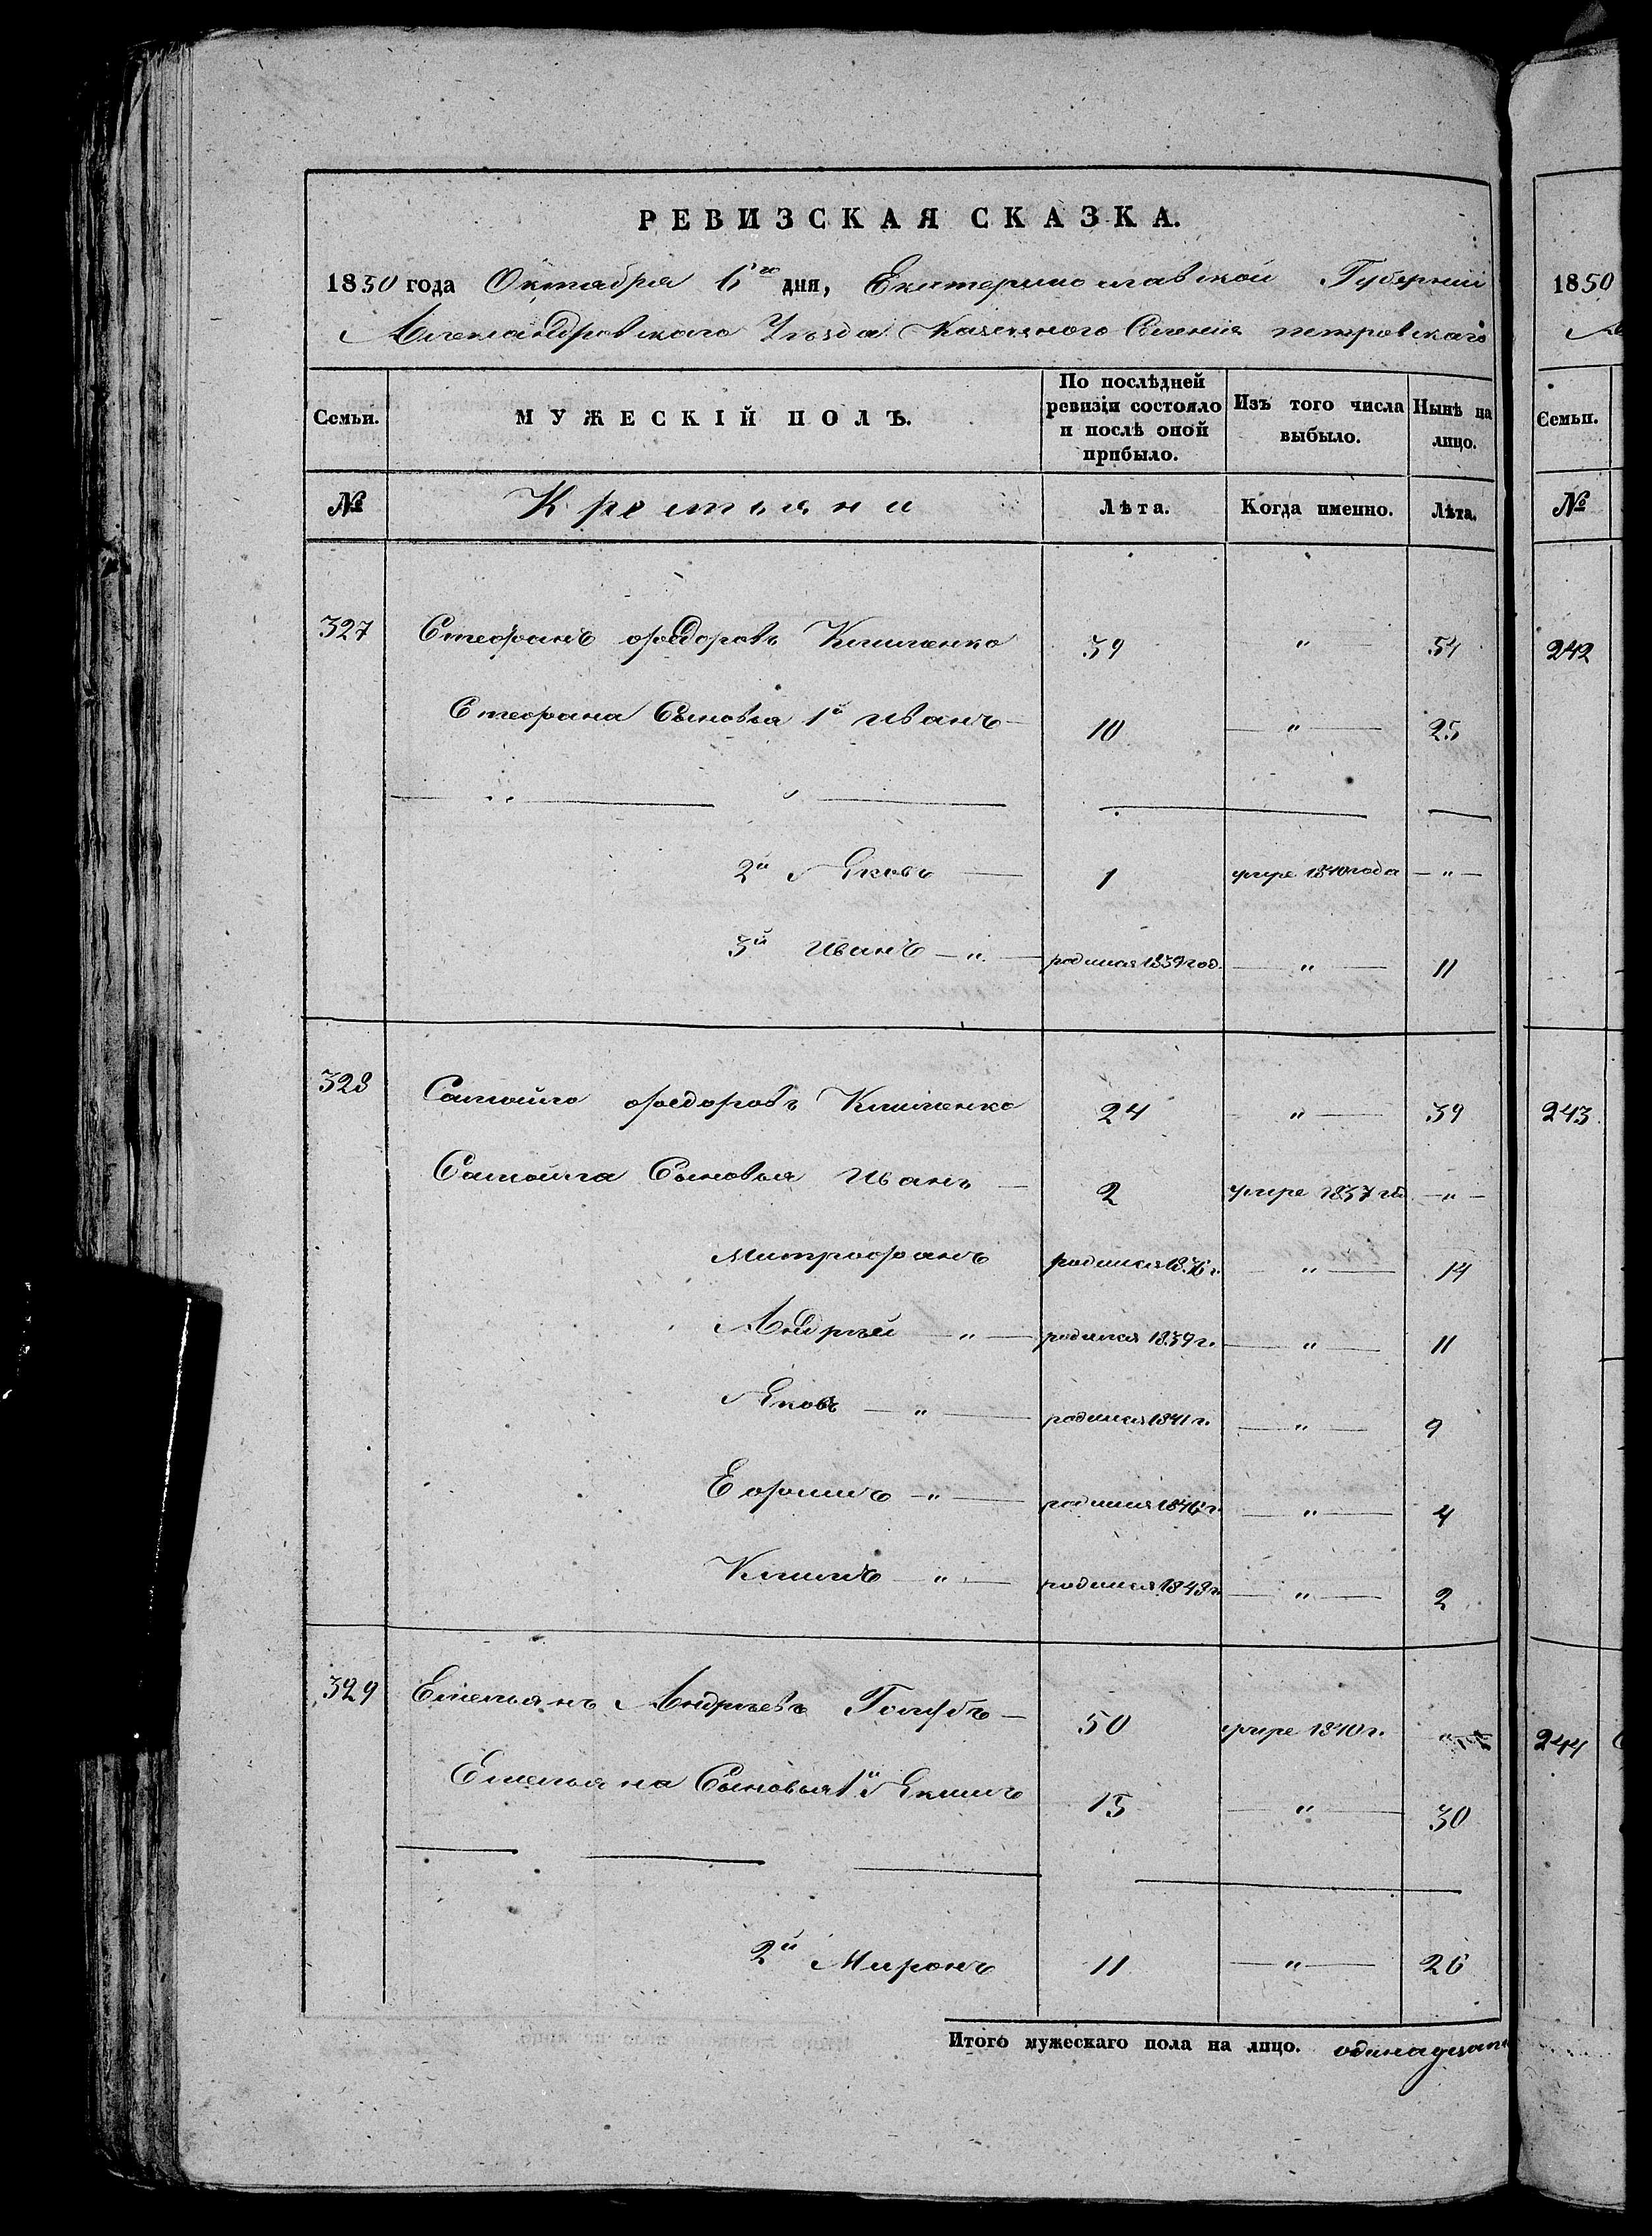 РЕВИЗСКАЯ СКАЗКА.
1850 года Октября 6го дня, Екатеринославской Губернии
Александровского Уезда Казенного Селения петровского
Семьи. МУЖЕСКІЙ ПОЛЪ. По послѣдней ревизіи состояло и послѣ оной прибыло. Изъ того числа выбыло. Нынѣ на лицо.
№ Крестьяне Лѣта. Когда именно. Лѣта.
327 Стефанъ Федоровъ Клименко 39 " 54
Стефана Сыновья 1й Иванъ 10 " 25
2й Яковъ 1 умре 1840 года "
3й Иванъ " родился 1839 год. " 11
328 Самойло Федоровъ Клименко 24 " 39
Самойла Сыновья Иванъ 2 умре 1837 г. "
Митрофанъ родился 1836 г. " 14
Андрѣй " родился 1839 г. " 11
Яковъ " родился 1841 г. " 9
Ефимъ " родился 1846 г. " 4
Климъ " родился 1848 г. " 2
329 Емельянъ Андрѣевъ Голубъ 50 умре 1840 г. "
Емельяна Сыновья 1й Якимъ 15 " 30
2й Миронъ 11 " 26
Итого мужескаго пола на лицо. одинадцать
1850
Семьи.
№
242
243
244